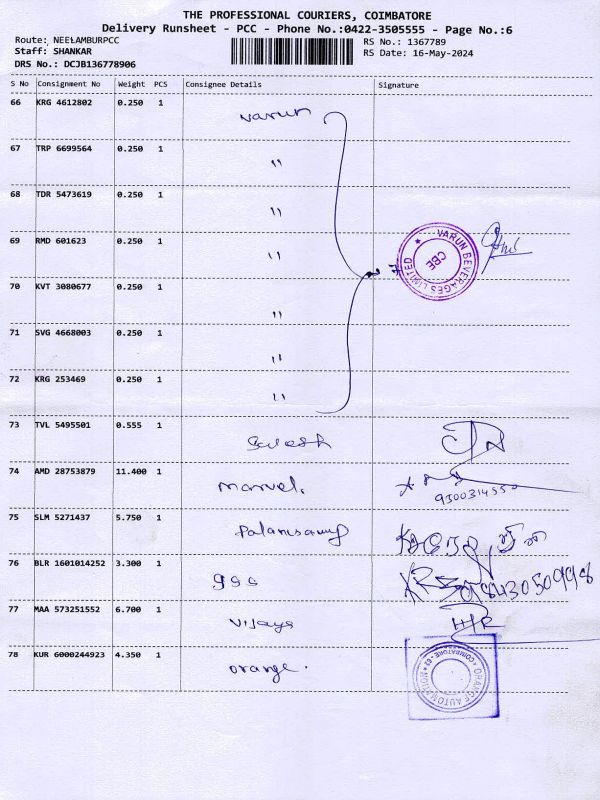 THE PROFESSIONAL COURIERS, COIMBATORE
Delivery Runsheet - PCC - Phone No.:0422-3505555 - Page No.:6
Route: NEELAMBURPCC
RS No.: 1367789
Staff: SHANKAR
RS Date: 16-May-2024
DRS No.: DCJB136778906
S No Consignment No Weight PCS Consignee Details Signature
66 KRG 4612802 0.250 1 Varun
67 TRP 6699564 0.250 1 "
68 TDR 5473619 0.250 1 "
69 RMD 601623 0.250 1 "
VARUN BEVERAGES LIMITED
CBE
70 KVT 3080677 0.250 1 "
71 SVG 4668003 0.250 1 "
72 KRG 253469 0.250 1 "
73 TVL 5495501 0.555 1 Suresh
74 AMD 28753879 11.400 1 marvel.
9300314550
75 SLM 5271437 5.750 1 Palanisamy
76 BLR 1601014252 3.300 1 gss
9843050998
77 MAA 573251552 6.700 1 vijaya
78 KUR 6000244923 4.350 1 orange.
ORANGE AUTOMATION
COIMBATORE